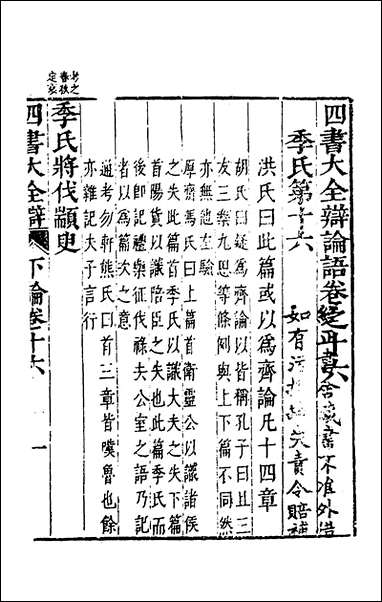 四書大全辯論語卷之十六
書舍藏書不准外借
季氏第十六
如有污損遺失責令賠補
洪氏曰此篇或以爲齊論凡十四章
胡氏曰疑爲齊論以皆稱孔子曰且三
友三樂九思等條例與上下篇不同然
亦無他左驗
厚齋馮氏曰上篇首衛靈公以識諸侯
之失此篇首季氏以識大夫之失下篇
首陽貨以識陪臣之失也此篇季氏而
後即記禮樂征伐祿去公室之語乃記
者以爲篇次之意
通考勿軒熊氏曰首三章皆嘆魯也餘
亦雜記夫子言行
季氏將伐顓臾
考之
春秋
定哀
四書大全辯
下論卷十六
一